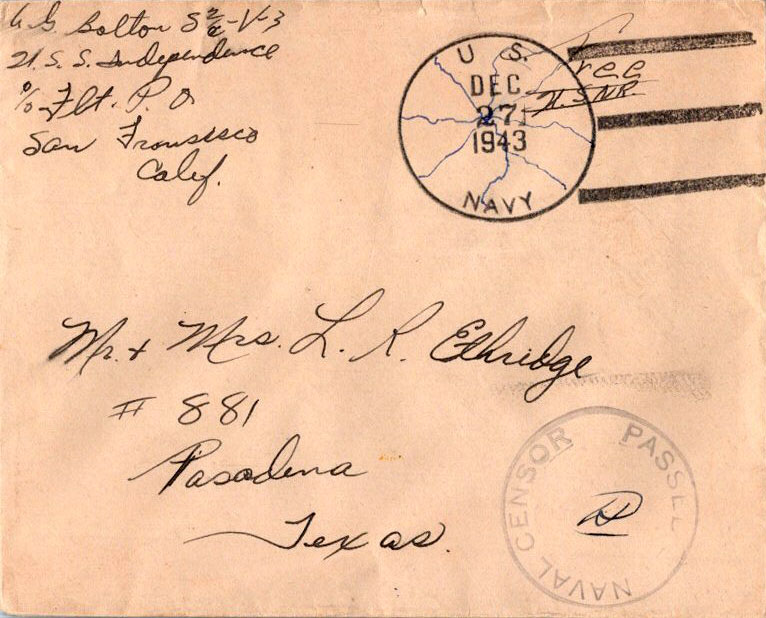 U G Bolton S 2/c - V-3
U. S. S. Independence
% Flt. P. O
San Fransisco
Calif.
U S.
DEC
27
1943
NAVY
Free
U.S.N.R.
Mr. + Mrs. L. R. Elhridge
# 881
Pasadena
Texas.
PASSED
NAVAL CENSOR
NAVAL